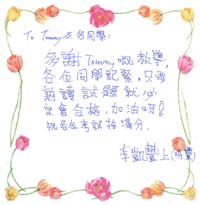 To Tommy及各同學：
多謝Tommy嘅教學，
各位同學記緊，只要
熟讀試題就必
定會合格，加油呀！
祝各位考試拎滿分
李凱 上